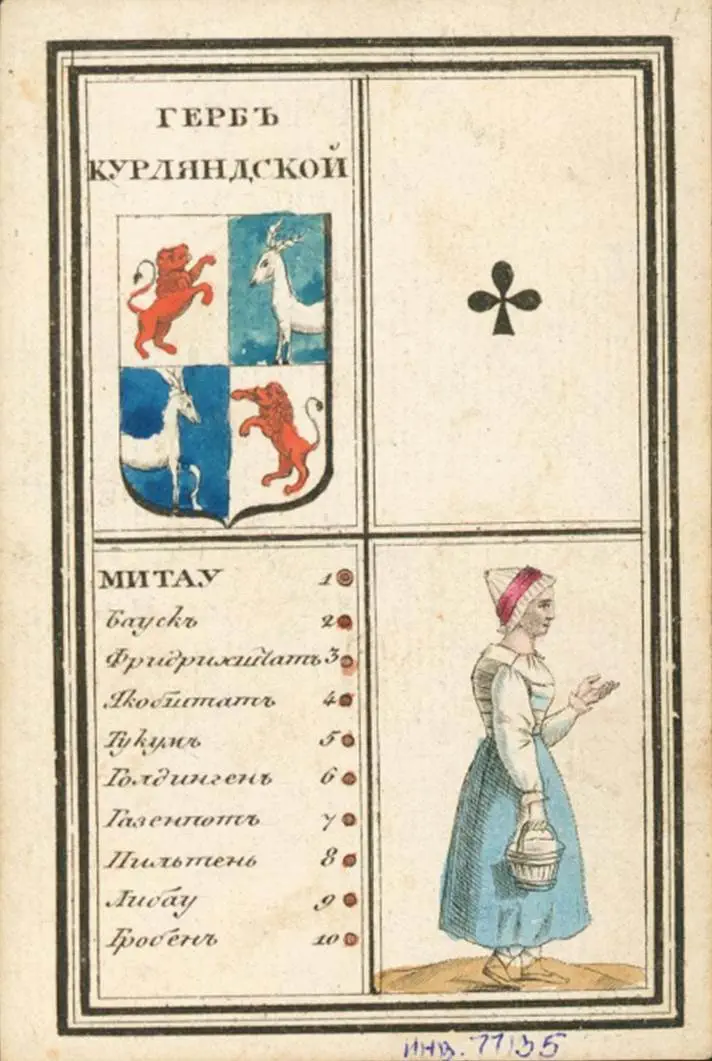 ГЕРБЪ
КУРЛЯНДСКОЙ
МИТАУ 1
Баускъ 2
Фридрихштатъ 3
Якобштатъ 4
Тукумъ 5
Голдингенъ 6
Газенпотъ 7
Пильтень 8
Либау 9
Гробенъ 10
инв. 77135